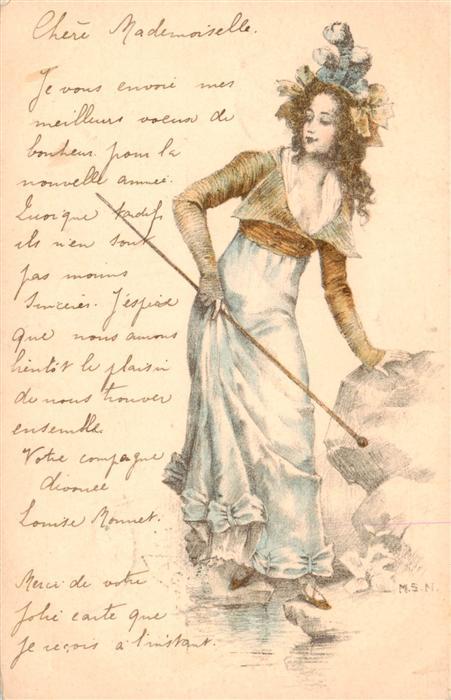 Chère Mademoiselle.
Je vous envoie mes
meilleurs voeux de
bonheur pour la
nouvelle année.
Quoique tardifs
ils n'en sont
pas moins
sincères. J'espère
que nous aurons
bientôt le plaisir
de nous trouver
ensemble.
Votre compagne
dévouée
Louise Monnet.
Merci de votre
jolie carte que
je reçois à l'instant.
M.S.N.